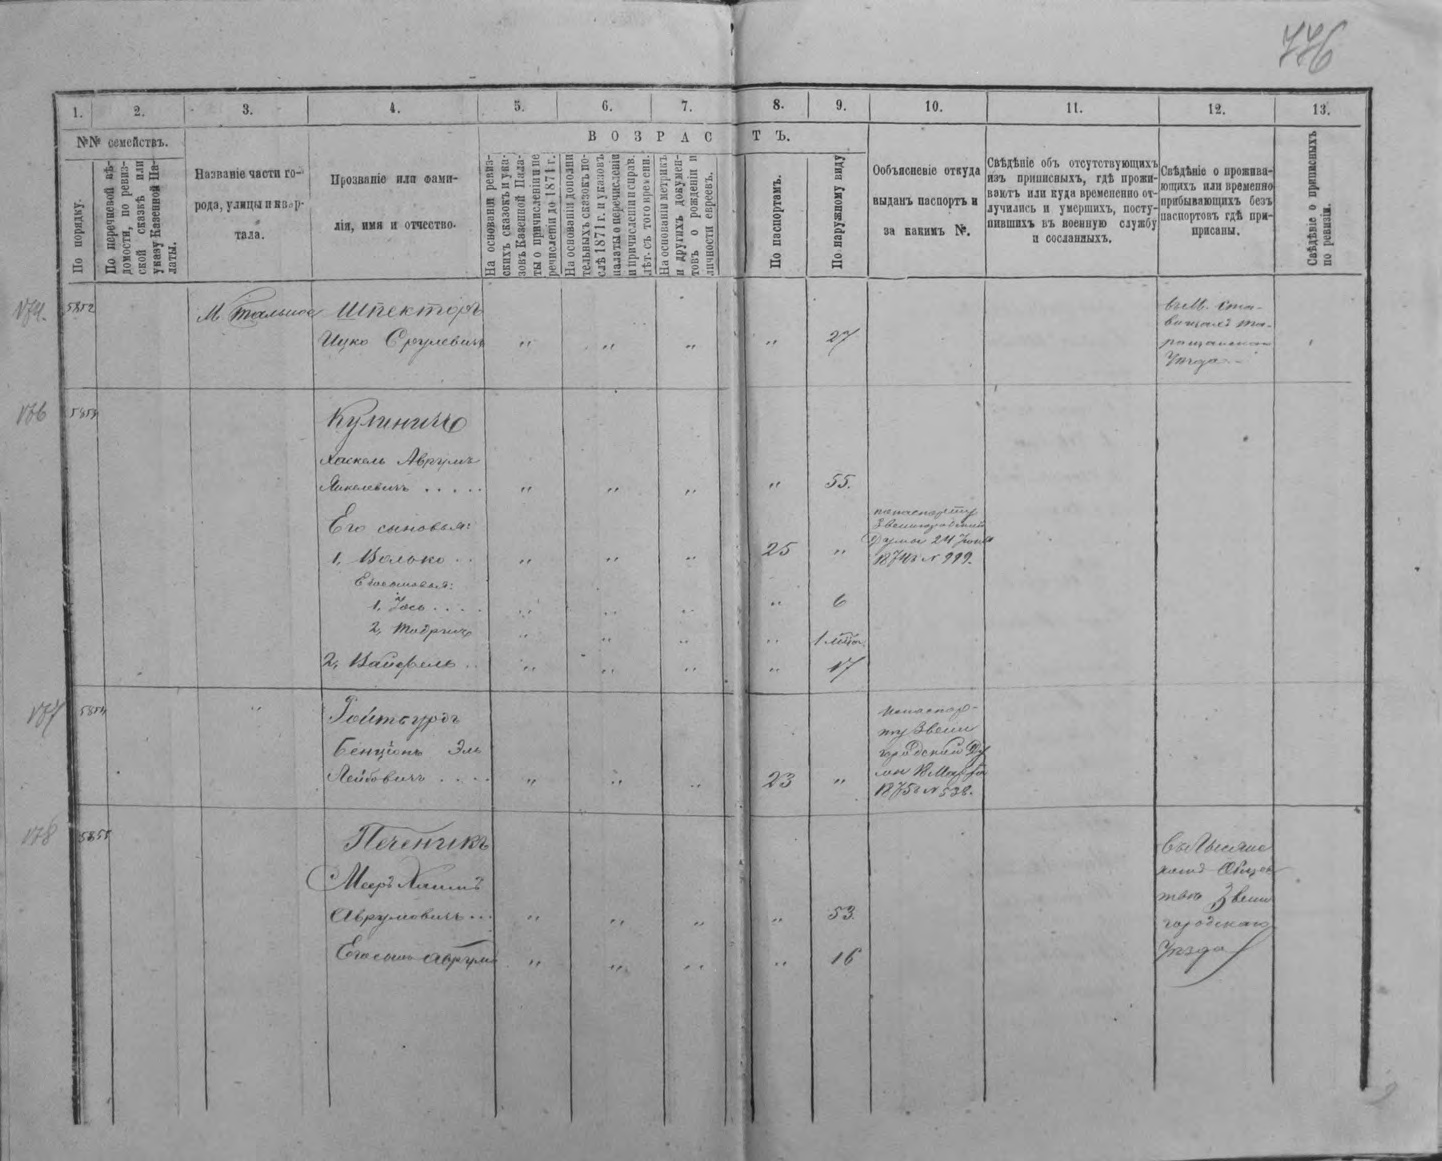 776
1. 2. 3. 4. 5. 6. 7. 8. 9. 10. 11. 12. 13.
№№ семействъ.
По порядку.
По перечневой вѣ-
домости, по ревиз-
ской сказкѣ или
указу Казенной Па-
латы.
Названіе части го-
рода, улицы и квар-
тала.
Прозваніе или фами-
лія, имя и отчество.
ВОЗРАСТЪ.
На основаніи ревиз-
скихъ сказокъ и ука-
зовъ Казенной Пала-
ты о причисленіи и пе
речисленіи до 1871 г.
На основаніи дополни
тельныхъ сказокъ по-
слѣ 1871 г. и указовъ
палаты о перечисленіи
и причисленіи и справ.
лѣт. съ того времени.
На основаніи метрикъ
и другихъ докумен-
товъ о рожденіи и
личности евреевъ.
По паспортамъ.
По наружному виду
Объясненіе откуда
выданъ паспортъ и
за какимъ №.
Свѣдѣніе объ отсутствующихъ
изъ приписныхъ, гдѣ прожи-
ваютъ или куда временно от-
лучились и умершихъ, посту-
пившихъ въ военную службу
и сосланныхъ.
Свѣдѣніе о прожива-
ющихъ или временно
прибывающихъ безъ
паспортовъ гдѣ при-
писаны.
Свѣдѣніе о приписныхъ
по ревизіи.
5852 М. Тальное Шпекторъ
Ицко Срулевичъ " " " " 27
въ М. Ста-
вищахъ Та-
ращанскаго
Уѣзда
176 5853 Кулиничъ
Хаскель Аврумъ
Янкелевичъ . . . . . " " " " 55.
Его сыновья:
1, Волько . . " " " 25 "
по паспорту
Звенигородской
Думы 24 Іюня
1874 г № 999.
Его сыновья:
1, Іось . . . . " " " " 6
2, " " " " 1 мѣс.
2, Вайфель . . " " " " 17
177 5854 " Ройтбурдъ
Бенціонъ Эль
Лейбовичъ . . . . " " " 23 "
по паспор-
ту Звени
городской Ду
мы 18 Марта
1875 г № 538.
178 5855 Печеникъ
Мееръ Хаимъ
Аврумовичъ . . . " " " " 53
Его сынъ Аврумъ " " " " 16
Въ Лысянс
комъ Общес
твѣ Звени
городскаго
Уѣзда